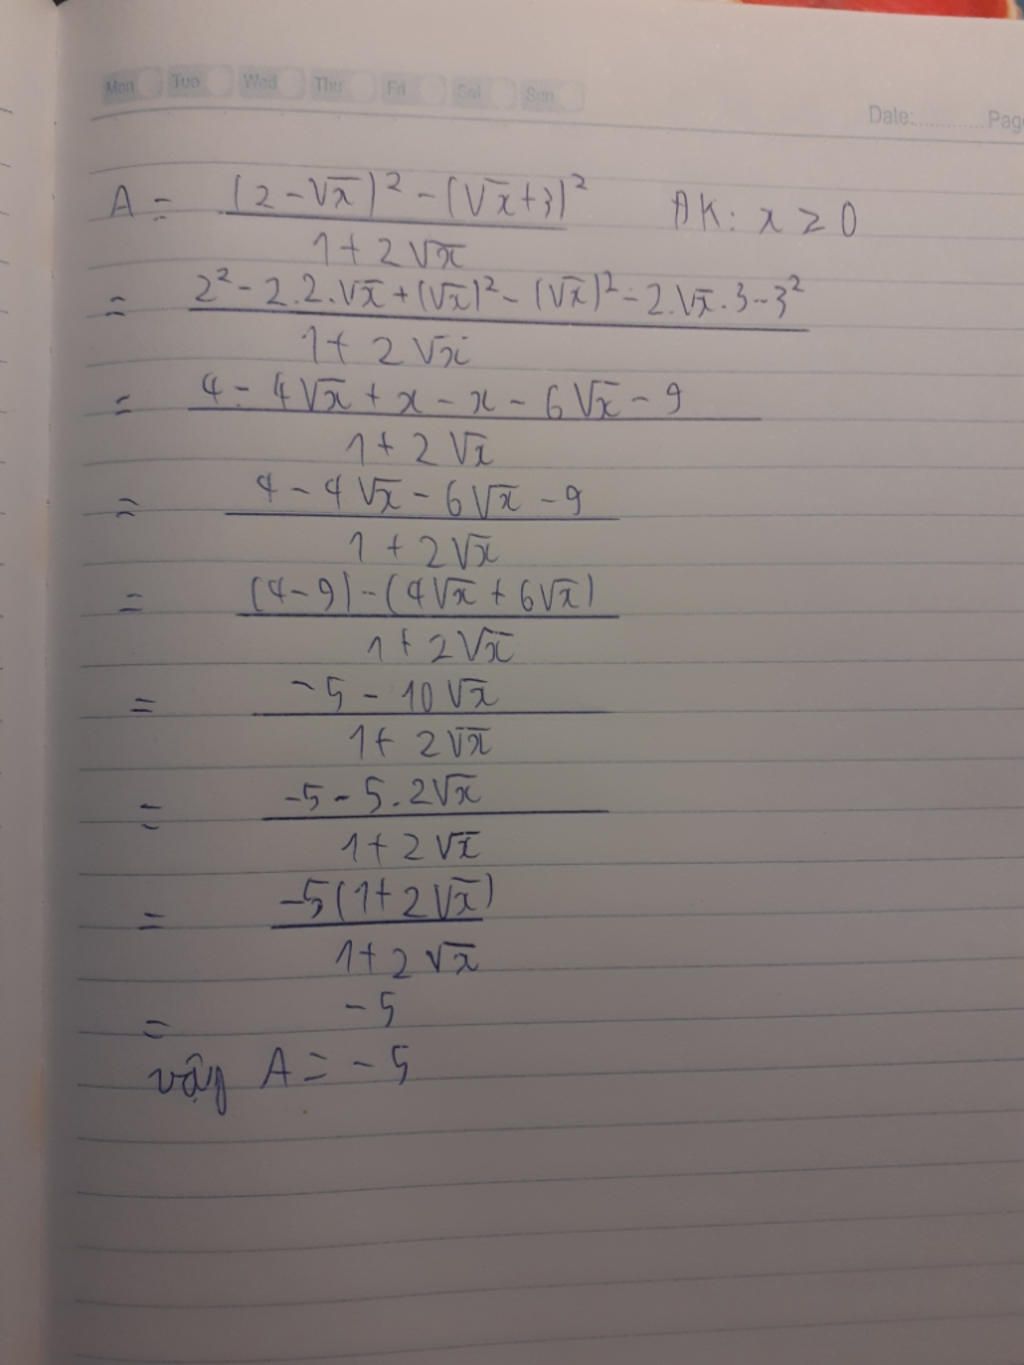 Mon Tue Wed Thu Fri Sat Sun
Date:............ Pag
A = \frac{(2-\sqrt{x})^2-(\sqrt{x}+3)^2}{1+2\sqrt{x}} ĐK: x ≥ 0
= \frac{2^2-2.2.\sqrt{x}+(\sqrt{x})^2-(\sqrt{x})^2-2.\sqrt{x}.3-3^2}{1+2\sqrt{x}}
= \frac{4-4\sqrt{x}+x-x-6\sqrt{x}-9}{1+2\sqrt{x}}
= \frac{4-4\sqrt{x}-6\sqrt{x}-9}{1+2\sqrt{x}}
= \frac{(4-9)-(4\sqrt{x}+6\sqrt{x})}{1+2\sqrt{x}}
= \frac{-5-10\sqrt{x}}{1+2\sqrt{x}}
= \frac{-5-5.2\sqrt{x}}{1+2\sqrt{x}}
= \frac{-5(1+2\sqrt{x})}{1+2\sqrt{x}}
= -5
vậy A = -5